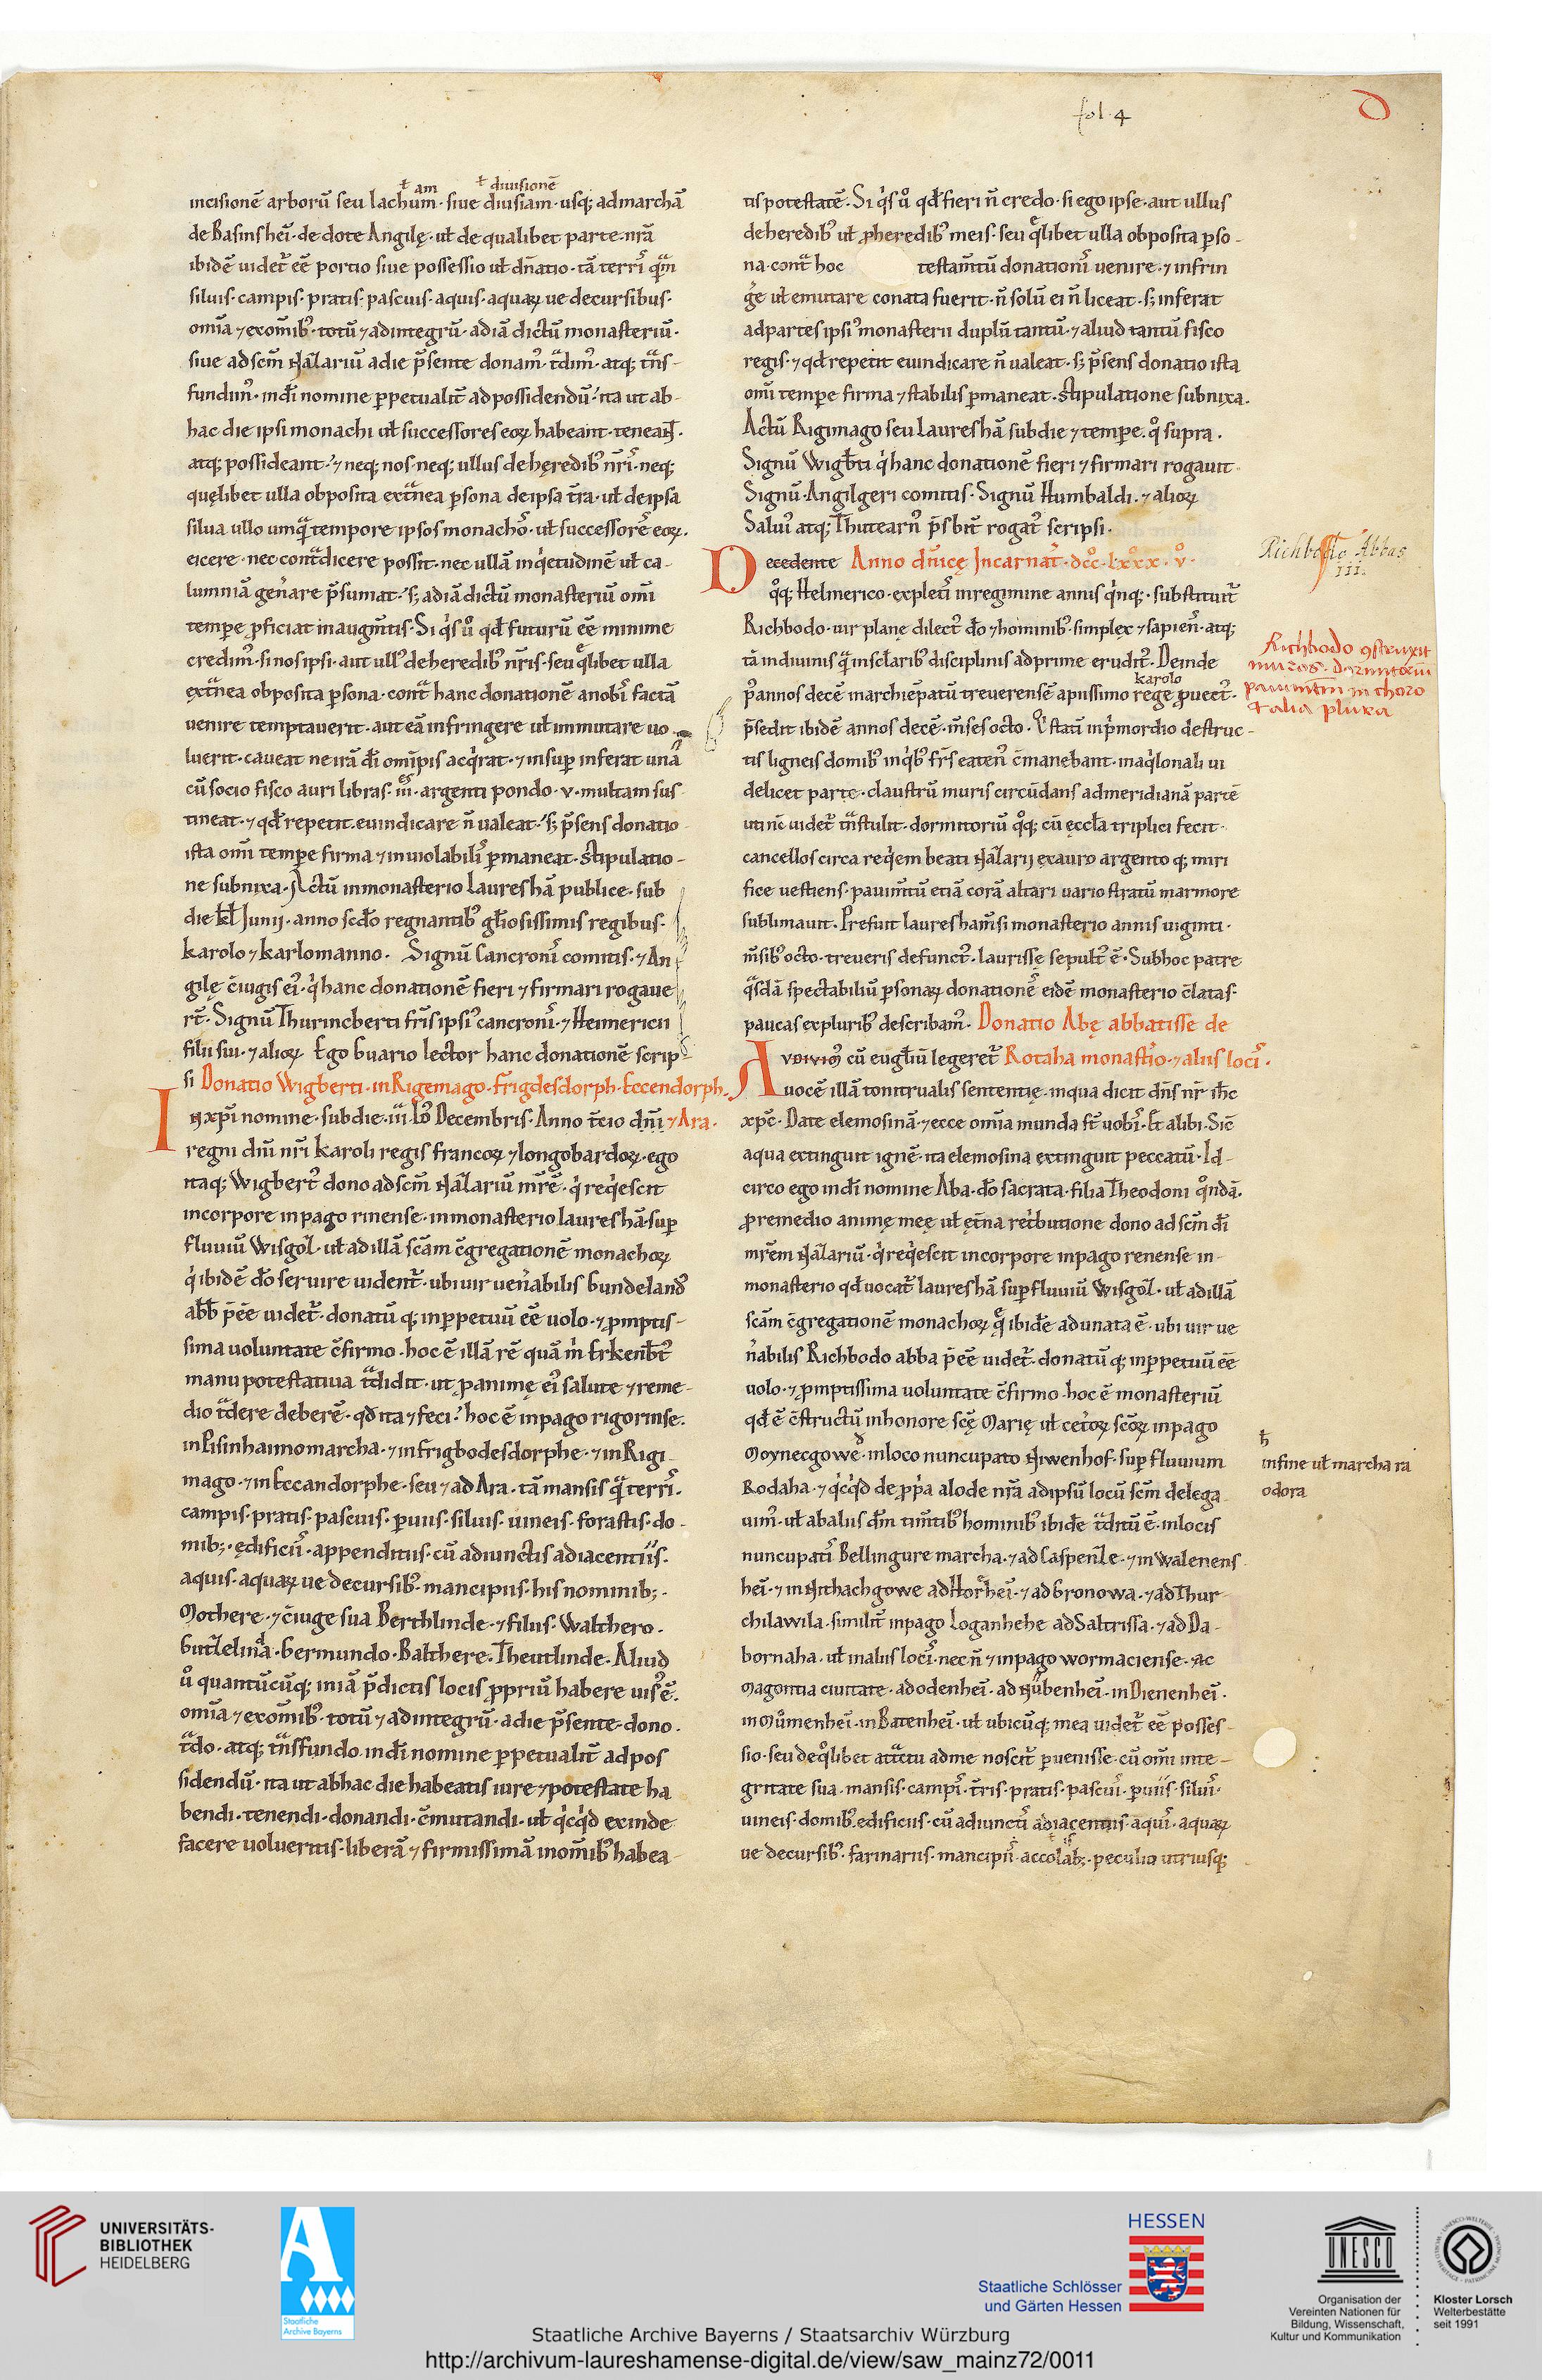 fol. 4
ł am ł diuisionē
incisionē arborū seu lachum · siue diuisiam · usq; admarchā
de Basinsheī · de dote Angilę · uł de qualibet parte nr̄a
ibidē uidet᷑ eē portio siue possessio uł dn̄atio · tā terrī quā
siluis · campis · pratis · pascuis · aquis · aquaꝝ ue decursibus ·
om̄ia ⁊ exomīb᷒ · totū ⁊ adintegrū · adiā dictū monasteriū ·
siue ad scm̄ Naȥariū adie p̄sente donam᷒ · tͣdim᷒ · atq; tͣns-
fundim᷒ · indī nomine ꝑpetualit̄ ad possidendū · ita ut ab-
hac die ipsi monachi uł successores eoꝝ habeant · teneant ·
atq; possideant · ⁊ neq; nos · neq; ullus de hęredib᷒ nr̄i · neq;
quęlibet ulla obposita extͣnea ꝑsona deipsa tr̄a · uł deipsa
silua ullo umqͣ tempore ipsos monacho᷒ · uł successorē eoꝝ ·
eicere · nec contͣdicere possit · nec ullā inqͥetudinē uł ca-
lumniā gen̄are p̄sumat · s; adiā dictū monasteriū om̄i
tempe ꝓficiat inaugm̄tis · Si qͥs u᷒ qđ futurū eē minime
credim᷒ · si nos ipsi · aut ull᷒ de heredib᷒ nr̄is · seu qͣlibet ulla
extͣnea obposita ꝑsona · contͣ hanc donationē anobī factā
uenire temptauerit · aut eā infringere uł inmutare uo
luerit · caueat ne irā dī omīpis acqͥrat · ⁊ insuꝑ inferat unā
cū socio fisco auri libras · iii · argenti pondo · v · multam sus
tineat · ⁊ qđ repetit euindicare n̄ ualeat · s; p̄sens donatio
ista om̄i tempe firma ⁊ inuiolabilī ꝑmaneat · stipulatio-
ne subnixa · Actū inmonasterio lauresħā publice · sub
die kł Junij · anno scđo regnantib᷒ głiosissimis regibus ·
karolo ⁊ karlomanno · Signū Cancronī comitis · ⁊ An
gilę c̄iugis ei᷒ · qͥ hanc donationē fieri ⁊ firmari rogaue
rt̄ · Signū Thurincberti fr̄is ipsi᷒ cancronī · ⁊ Heimerici
filii sui · ⁊ alioꝝ Ego Guario lector hanc donationē scrip
si Donatio Wigberti · in Rigemago · Frigdesdorph · Eccendorph ·
⁊ Ara ·
In xpī nomine · sub die · iii · Id᷒ Decembris · Anno tc̄io dn̄i
regni dn̄i nr̄i karoli regis francoꝝ ⁊ longobardoꝝ · ego
itaq; Wigbert᷒ dono ad scm̄ Naȥariū mr̄e · qͥ reqͥescit
incorpore inpago rinense · inmonasterio lauresħā · suꝑ
fluuiū Wisgoȥ · uł ad illā scām c̄gregationē monachoꝝ
qͥ ibidē đo seruire uident᷑ · ubi uir uen̄abilis Gundeland᷒
abb̄ p̄eē uidet᷑ · donatū q; inꝑpetuū eē uolo · ⁊ ꝓmptis-
sima uoluntate c̄firmo · hoc ē illā rē quā m̄ Erkenb̄t᷒
manu potestatiua tͣdidit · ut ꝓ animę ei᷒ salute ⁊ reme-
dio tͣdere deberē · qđ ita ⁊ feci · hoc ē inpago rigorinse ·
in Pisinhaimomarcha · ⁊ in frigbodesdorphe · ⁊ in Rigi
mago · ⁊ in Eccandorphe · seu ⁊ ad Ara · tā mansis qͣ terrī ·
campis · pratis · pascuis · ꝑuiis · siluis · uineis · forastis · do-
mib; · ędificii᷒ · appenditiis · cū adiunctis adiacentiis ·
aquis · aquaꝝ ue decursib᷒ · mancipiis · his nominib; ·
Mothere · ⁊ c̄iuge sua Berthlinde · ⁊ filiis · Walthero ·
Guȥelina · Germundo · Balthere · Theutlinde · Aliud
u᷒ quantūcūq; iniā p̄dictis locis ꝓpriū habere uis᷒ ē ·
om̄ia ⁊ exomīb᷒ · totū ⁊ adintegrū · adie p̄sente dono ·
tͣdo · atq; tͣnsfundo indī nomine ꝑpetualit̄ ad pos
sidendū · ita ut abhac die habeatis iure ⁊ potestate ha
bendi · tenendi · donandi · c̄mutandi · uł qͥcqͥd exinde
facere uolueritis · liberā ⁊ firmissimā inomīb᷒ habea-
tis potestatē · Si qͥs u᷒ qđ fieri n̄ credo · si ego ipse · aut ullus
deheredib᷒ uł ꝓheredib᷒ meis · seu qͣlibet ulla obposita ꝑso-
na · contͣ hoc testam̄tū donationī uenire · ⁊ infrin
ge uł emutare conata fuerit · n̄ solū ei n̄ liceat · s; inferat
ad partes ipsi᷒ monasterii duplū tantū · ⁊ aliud tantū fisco
regis · ⁊ qđ repetit euindicare n̄ ualeat · s; p̄sens donatio ista
om̄i tempe firma ⁊ stabilis ꝑmaneat · stipulatione subnixa ·
Actū Rigimago seu lauresħā sub die ⁊ tempe · qͦ supra ·
Signū Wigb̄ti qͥ hanc donationē fieri ⁊ firmari rogauit
Signū · Angilgeri comitis · Signū Humbaldi · ⁊ alioꝝ
Salui᷒ atq; Thutearn᷒ p̄sbit̄ rogat᷒ scripsi ·
Decedente Anno dn̄icę Incarnat᷑ · dccͦ · lxxxͦ · vͦ ·
qͦq; Helmerico · expletī inregimine annis qͥnq; · substituit᷑
Richbodo · uir planę dilect᷒ đo ⁊ hominib᷒ · simplex ⁊ sapien᷒ · atq;
tā indiuinis qͣ inscl̄arib᷒ disciplinis adprime erudit᷒ · Deinde
karolo
p᷒ annos decē marchiēpatū treuerensē apiissimo rege ꝓuect᷒ ·
p̄sedit ibidē annos decē · m̄ses octo · Qͥ statī inpͥmordio destruc-
tis ligneis domib᷒ inqͥb᷒ fr̄s eaten᷒ c̄manebant · inaqͥlonali ui
delicet parte · claustrū muris circūdans admeridianā partē
uti nc̄ uidet᷑ tͣnstulit · dormitoriū qͦq; cū ęccła triplici fecit ·
cancellos circa reqͥem beati Naȥarij exauro argento q; miri
fice uestiens · pauim̄tū etiā corā altari uario stratū marmore
sublimauit · Prefuit laureshaꝳsi monasterio annis uiginti ·
m̄sib᷒ octo · treueris defunct᷒ · laurissę sepult᷒ ē · Sub hoc patre
qͣsdā spectabiliū ꝑsonaꝝ donationē eidē monasterio c̄latas
paucas expluribꝰ describam᷒ · Donatio Abę abbatisse de
AVDIVIM᷒ cū eugłiū legeret᷑ Rotaha monast̄io · ⁊ aliis locī ·
uocē illā tonitrualis sententię · inqua dicit dn̄s nr̄ ih̄c
xpc̄ · Date elemosinā · ⁊ ecce om̄ia munda st̄ uobī · Et alibi · Sic̄
aqua extinguit ignē · ita elemosina extinguit peccatū · Id-
circo ego indī nomine Aba · đo sacrata · filia Theodoni qͦndā ·
ꝓ remedio animę meę uł ęt̄na ret̄butione dono ad scm̄ dī
mr̄em Naȥariū · qͥ reqͥescit incorpore inpago renense in-
monasterio qđ uocat᷑ lauresħā suꝑ fluuiū Wisgoȥ · uł ad illā
scām c̄gregationē monachoꝝ qͣ ibidē adunata ē · ubi uir ue
n̄abilis Richbodo abba p̄eē uidet᷑ · donatū q; inꝑpetuū eē
uolo · ⁊ ꝓmptissima uoluntate c̄firmo · hoc ē monasteriū
qđ ē c̄structū inhonore scę̄ Marię uł cet̄oꝝ sc̄oꝝ inpago
Moynecgowe · inloco nuncupato Niwenhof · suꝑ fluuium
Rodaha · ⁊ qͥcqͥd de ꝓpa alode nr̄a adipsū locū scm̄ delega
uim᷒ · uł abaliis dm̄ tim̄tib᷒ hominib᷒ ibidē tͣditū ē · inlocis
nuncupatī Bellingure marcha · ⁊ ad Caspenȥe · ⁊ in Walenens
heī · ⁊ in Nithachgowe ad Horheī · ⁊ ad Gronowa · ⁊ ad Thur-
chilawila · similit̄ inpago Loganhehe ad Saltrissa · ⁊ ad Da-
bornaha · uł inaliis locī · nec n̄ ⁊ inpago wormaciense · ac
Magontia ciuitate · ad odenheī · ad Nubenheī · in Dienenheī ·
in Mumenheī · in Batenheī · uł ubicūq; mea uidet᷑ eē posses-
sio · seu deqͦlibet attͣctu adme noscit᷑ ꝑuenisse · cū om̄i inte-
gritate sua · mansis · campī · tr̄is · pratis · pascuī · ꝑuiis · siluī ·
uineis · domib᷒ · edificiis · cū adiunctī adiacentiis · aquī · aquaꝝ
ue decursib᷒ · farinariis · mancipiī · accolab; · peculio utriusq;
Richbodo Abbas
III.
Richbodo ꝯstruxit
muros · Dormitoriū
pauimtm̄ in choro
⁊ alia plura
ħ
infine uł marcha ra
odora
UNIVERSITÄTS-
BIBLIOTHEK
HEIDELBERG
Staatliche
Archive Bayerns
HESSEN
Staatliche Schlösser
und Gärten Hessen
UNESCO
Organisation der
Vereinten Nationen für
Bildung, Wissenschaft,
Kultur und Kommunikation
Kloster Lorsch
Welterbestätte
seit 1991
Staatliche Archive Bayerns / Staatsarchiv Würzburg
http://archivum-laureshamense-digital.de/view/saw_mainz72/0011